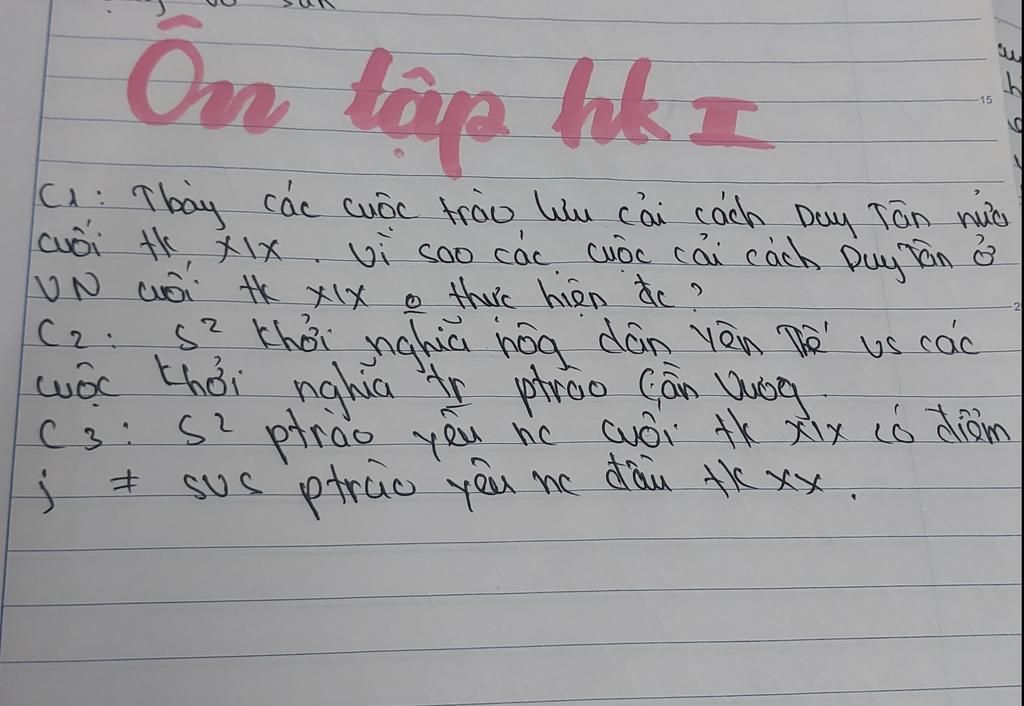 Ôn tập hk I
15
C1: Tbày các cuộc trào lưu cải cách Duy Tân nửa
cuối tk XIX. Vì sao các cuộc cải cách Duy Tân ở
VN cuối tk XIX o thực hiện đc?
2
C2: S² khởi nghĩa nôg dân Yên Thế vs các
cuộc khởi nghĩa tr ptrào Cần Vươg.
C3: S² ptrào yêu nc cuối tk XIX có điểm
j ≠ SVS ptrào yêu nc đầu tk XX.